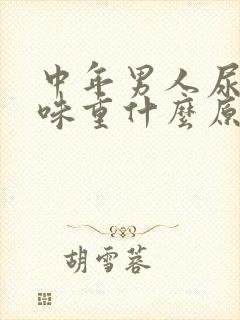 中年男人尿
味重什麼原
胡雪蓉